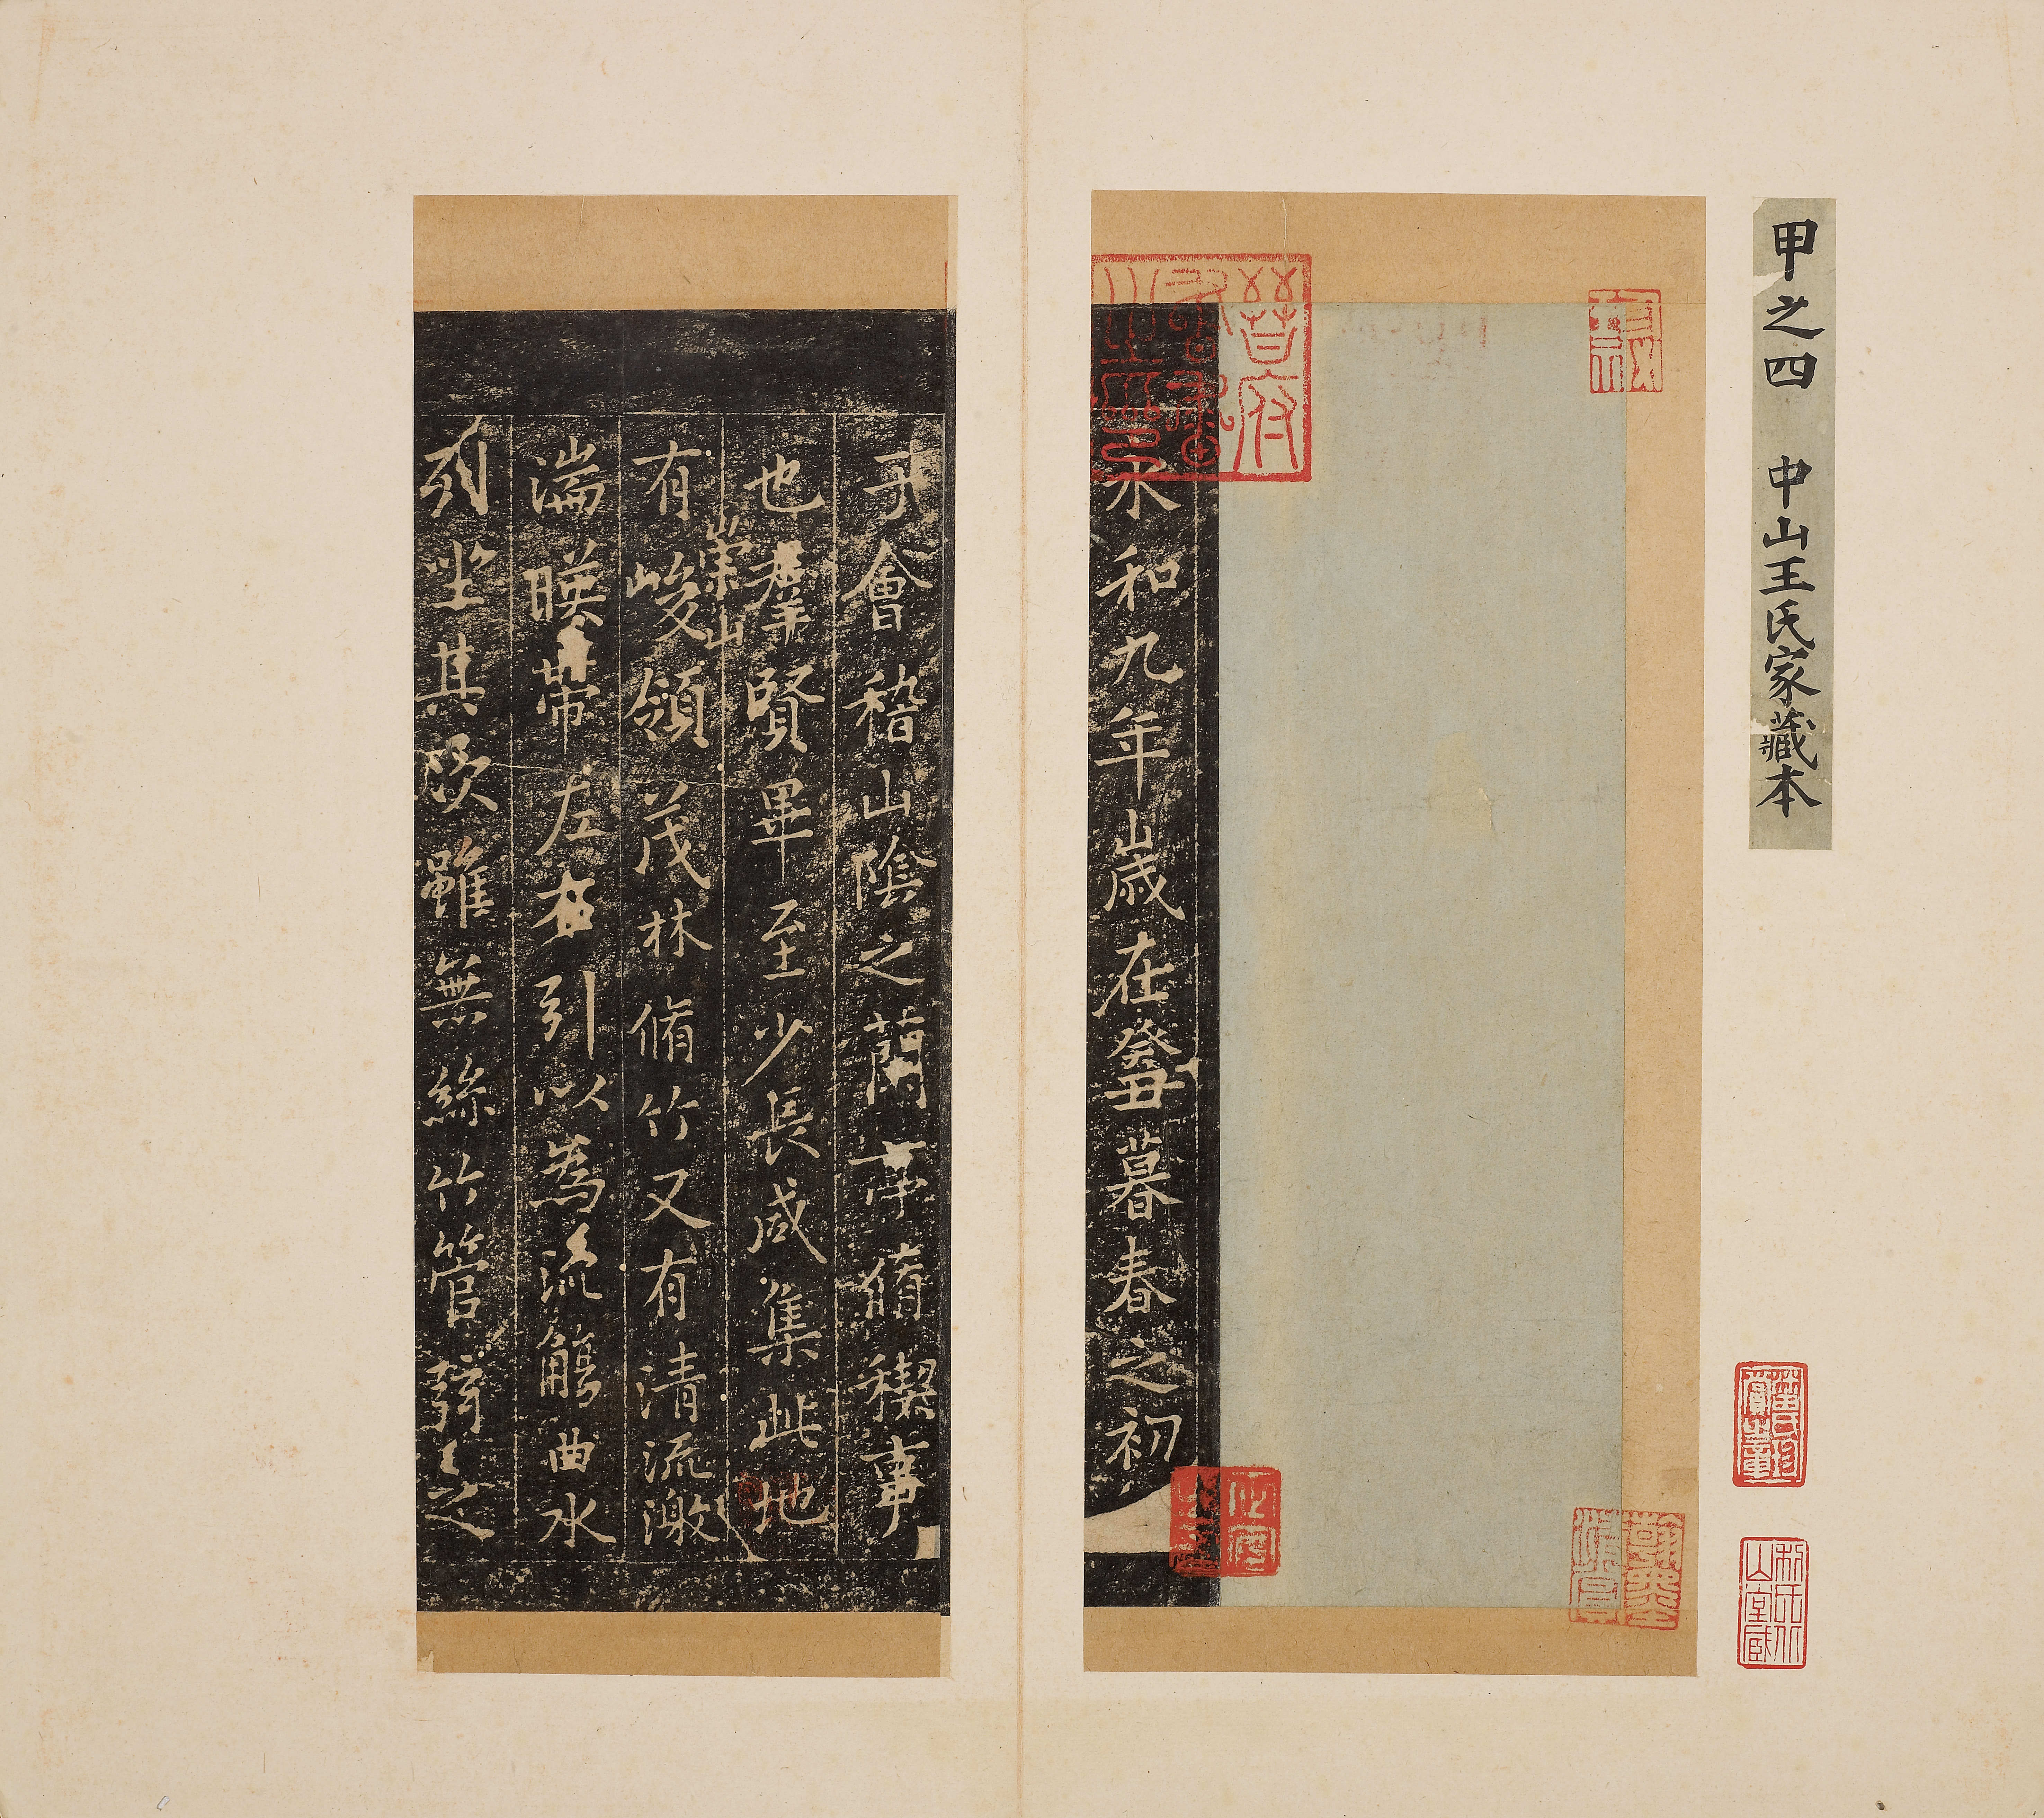 甲之四 中山王氏家藏本
晉府書畫之印
永和九年歲在癸丑暮春之初
于會稽山陰之蘭亭脩稧事
也羣賢畢至少長咸集此地
崇山
有峻領茂林脩竹又有清流激
湍暎帶左右引以為流觴曲水
列坐其次雖無絲竹管弦之